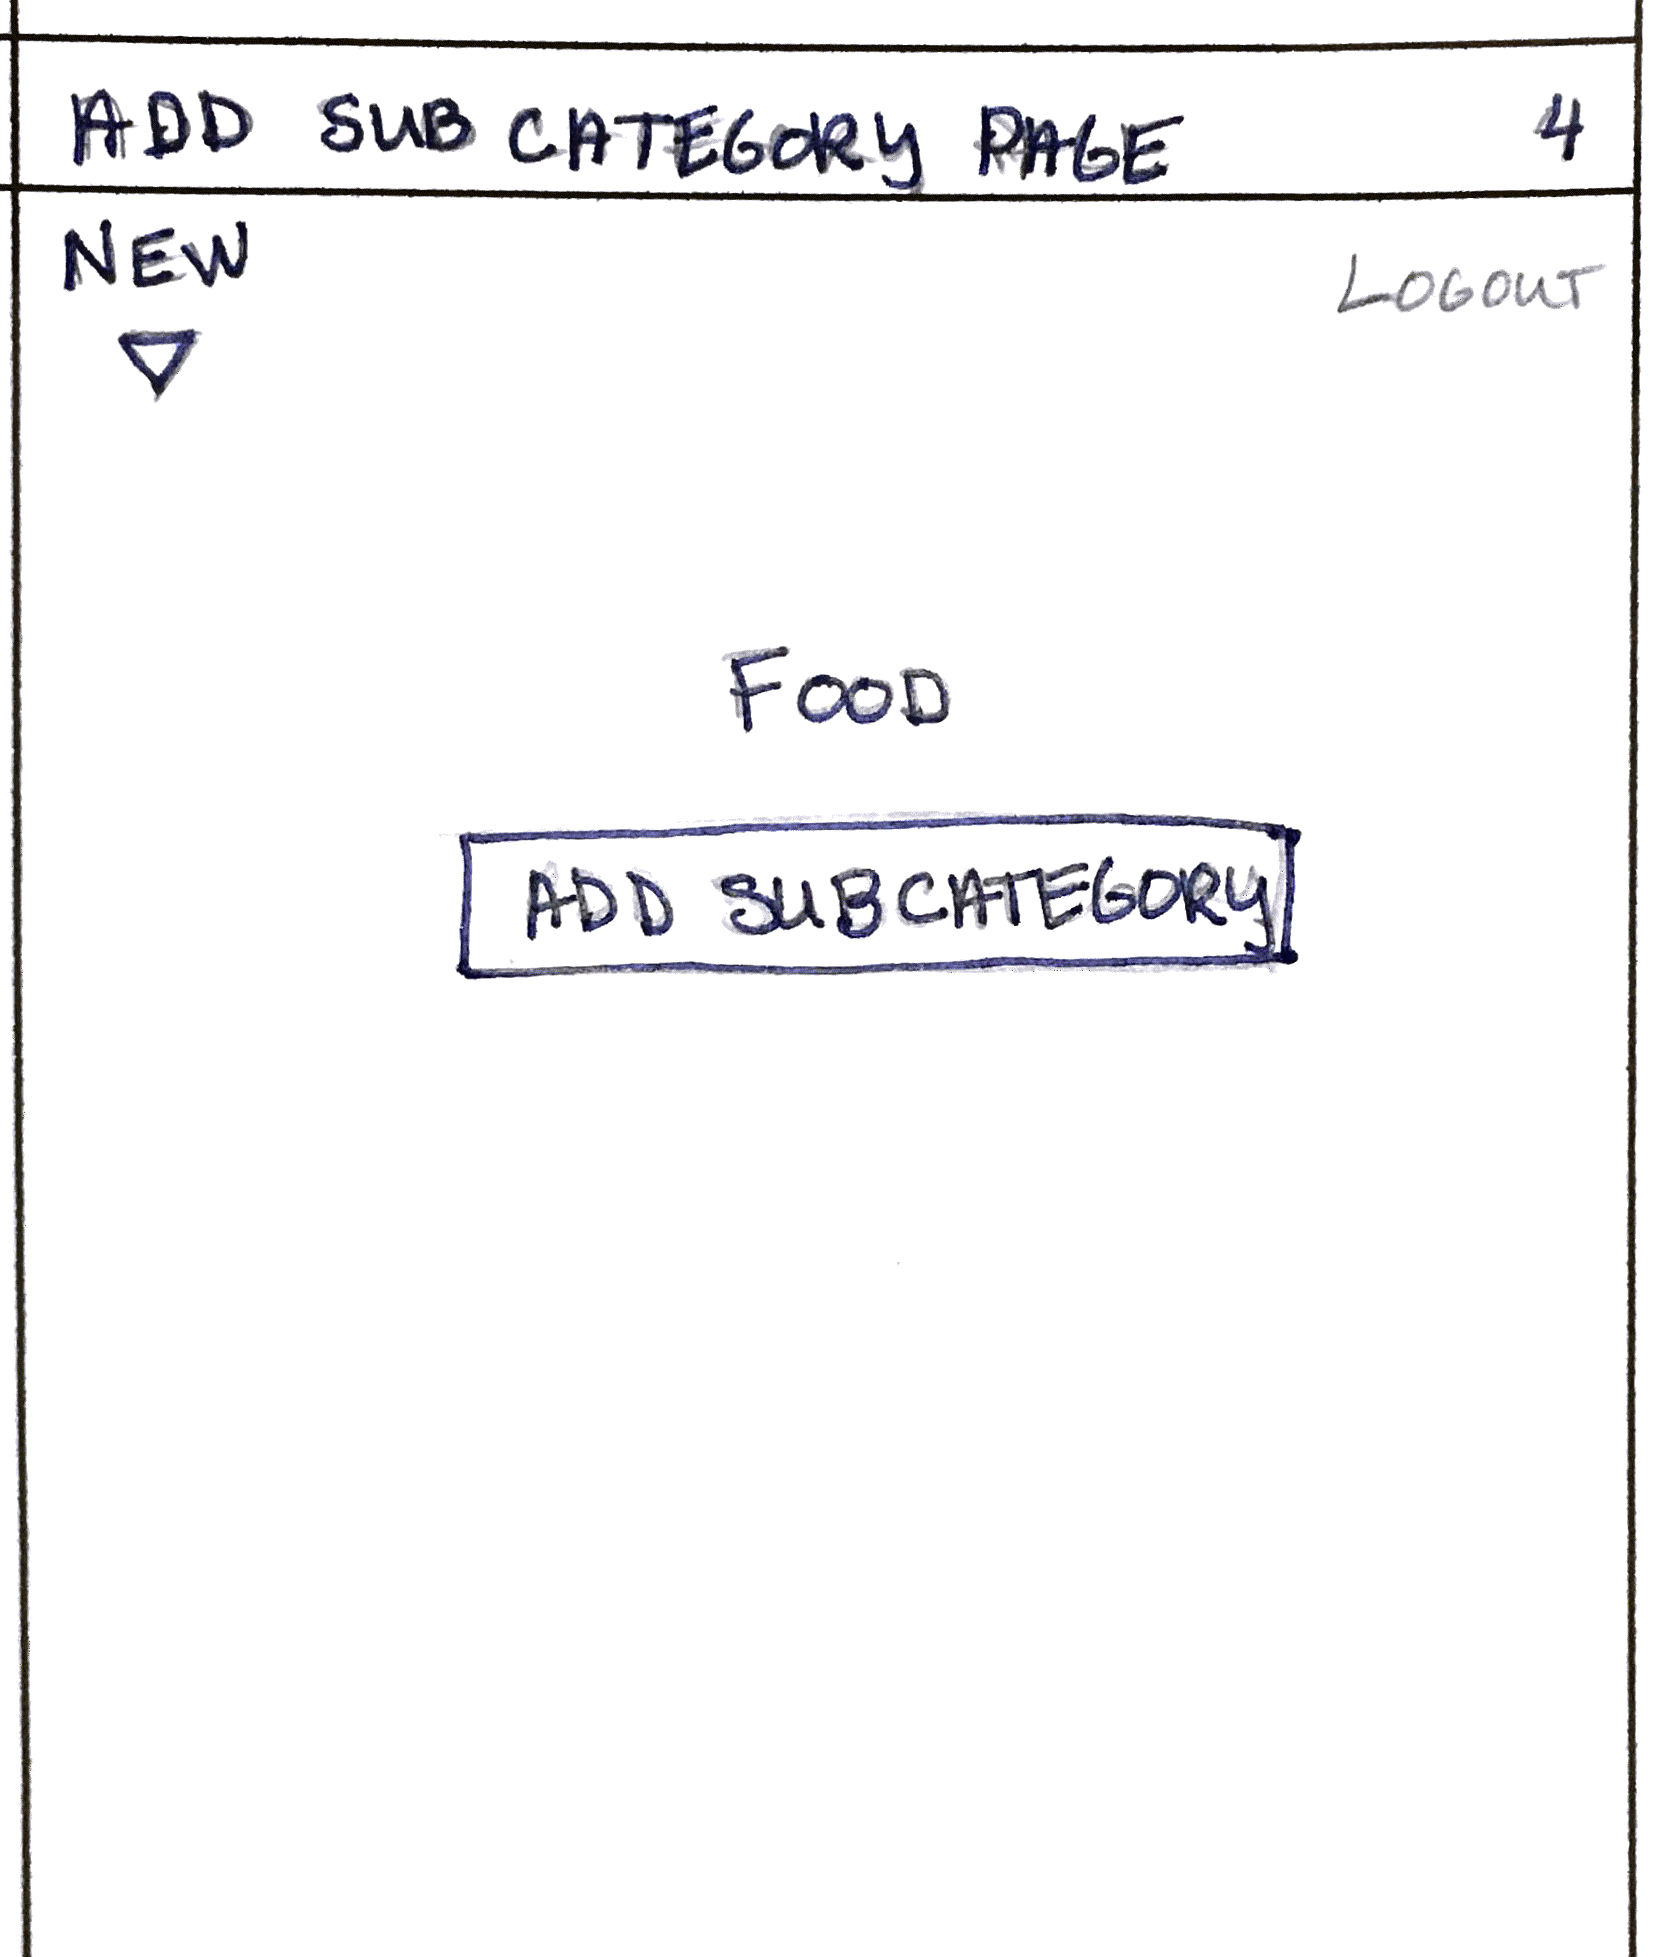 ADD SUB CATEGORY PAGE 4
NEW
LOGOUT
FOOD
ADD SUBCATEGORY